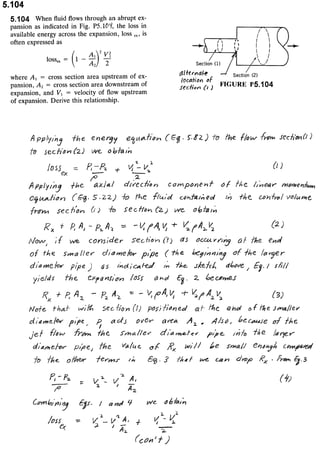 5.104
5.104 When fluid flows through an abrupt ex-
pansion as indicated in Fig. P5.104, the loss in
available energy across the expansion, loss_ex, is
often expressed as
loss_ex = (1 - A₁/A₂)² V₁²/2
where A₁ = cross section area upstream of ex-
pansion, A₂ = cross section area downstream of
expansion, and V₁ = velocity of flow upstream
of expansion. Derive this relationship.
Section (1)
alternate
location of
section (1)
Section (2)
FIGURE P5.104
Applying the energy equation (Eq. 5.82) to the flow from section (1)
to section (2) we obtain
loss_ex = (P₁-P₂)/ρ + (V₁²-V₂²)/2 (1)
Applying the axial direction component of the linear momentum
equation (Eq. 5.22) to the fluid contained in the control volume
from section (1) to section (2) we obtain
Rₓ + P₁A₁ - P₂A₂ = -V₁ρA₁V₁ + V₂ρA₂V₂ (2)
Now, if we consider section (1) as occurring at the end
of the smaller diameter pipe (the beginning of the larger
diameter pipe) as indicated in the sketch above, Eq. 1 still
yields the expansion loss and Eq. 2 becomes
Rₓ + P₁A₂ - P₂A₂ = -V₁ρA₁V₁ + V₂ρA₂V₂ (3)
Note that with section (1) positioned at the end of the smaller
diameter pipe, P₁ acts over area A₂. Also, because of the
jet flow from the smaller diameter pipe into the larger
diameter pipe, the value of Rₓ will be small enough compared
to the other terms in Eq. 3 that we can drop Rₓ from Eq. 3
(P₁-P₂)/ρ = V₂² - V₁² A₁/A₂ (4)
Combining Eqs. 1 and 4 we obtain
loss_ex = V₂² - V₁² A₁/A₂ + (V₁²-V₂²)/2
(con't)